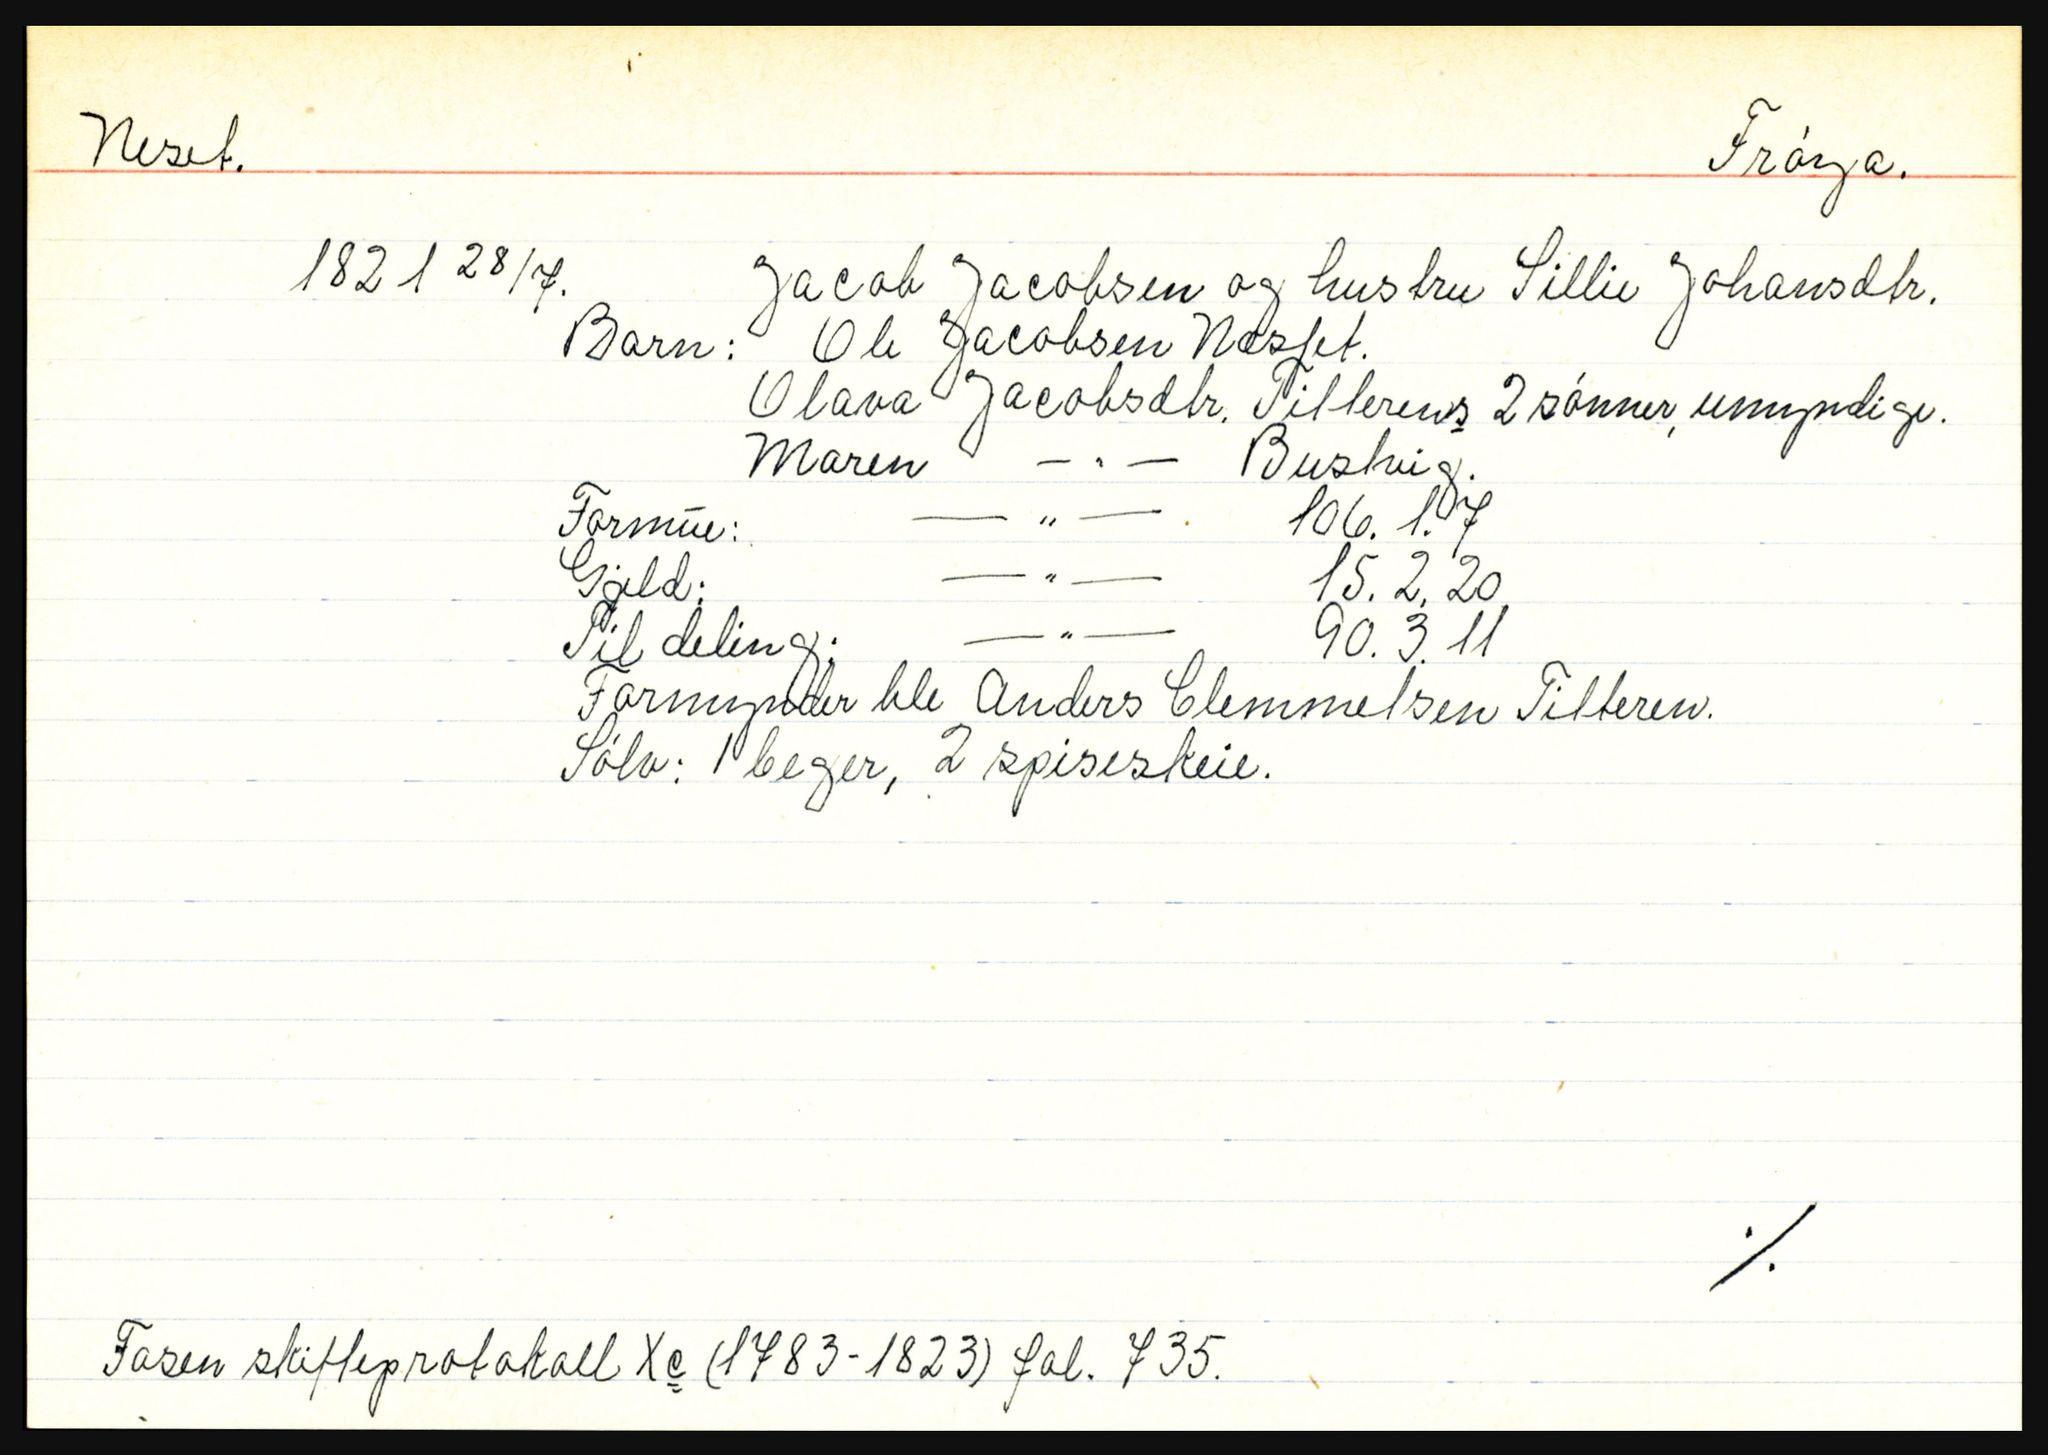 Neset. Fróya.
1821 28/7. Jacob Jacobsen og hustru Sillie Johansdtr.
Barn: Ole Jacobsen Nesset.
Olava Jacobsdtr. Titterens 2 sónner, umyndige.
Maren — " — Buskvig.
Formue: — " — 106. 1. 7
Gjeld: — " — 15. 2. 20
Til deling: — " — 90. 3. 11
Formynder ble Anders Clemmetsen Titteren.
Sólv: 1 beger, 2 spiseskeie.
./.
Fosen skifteprotokoll Xc (1783-1823) fol. 735.